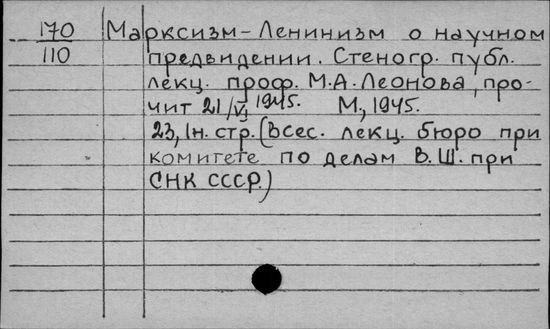 170
110
Марксизм-Ленинизм о научном
предвидении. Стеногр. публ.
лекц. проф. М.А. Леонова, про-
чит 21/VI 1945. М, 1945.
23, 1н. стр. (Всес. лекц. бюро при
комитете по делам В.Ш. при
СНК СССР.)